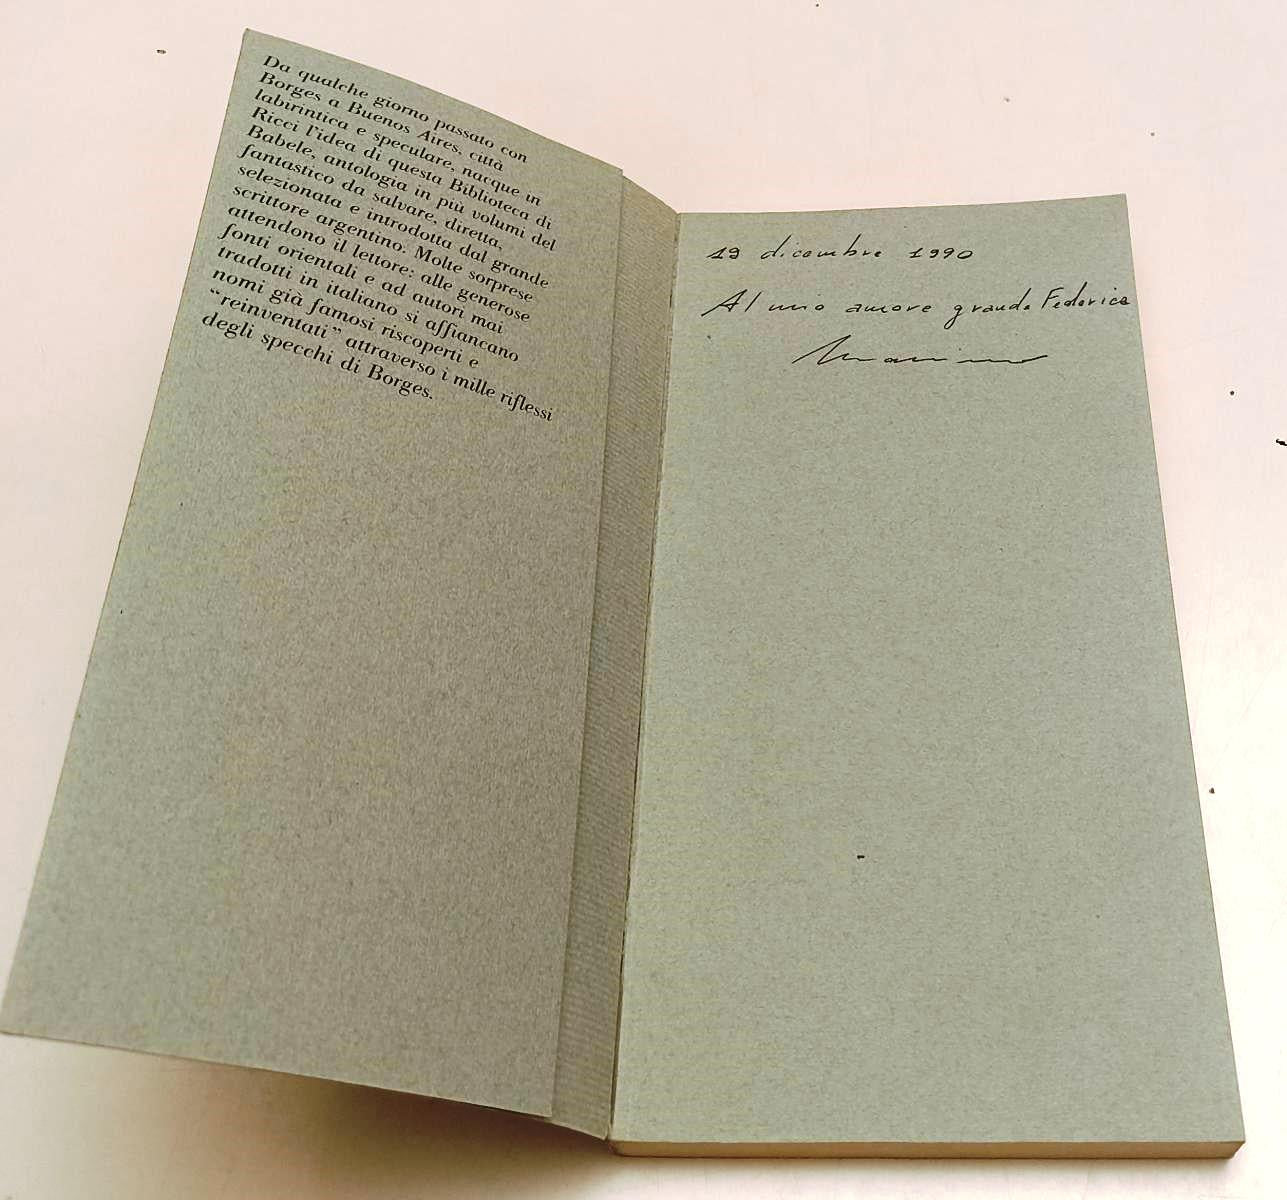 Da qualche giorno passato con
Borges a Buenos Aires, città
labirintica e speculare, nacque in
Ricci l'idea di questa Biblioteca di
Babele, antologia in più volumi del
fantastico da salvare, diretta,
selezionata e introdotta dal grande
scrittore argentino. Molte sorprese
attendono il lettore: alle generose
fonti orientali e ad autori mai
tradotti in italiano si affiancano
nomi già famosi riscoperti e
“reinventati” attraverso i mille riflessi
degli specchi di Borges.
19 dicembre 1990
Al mio amore grande Federica